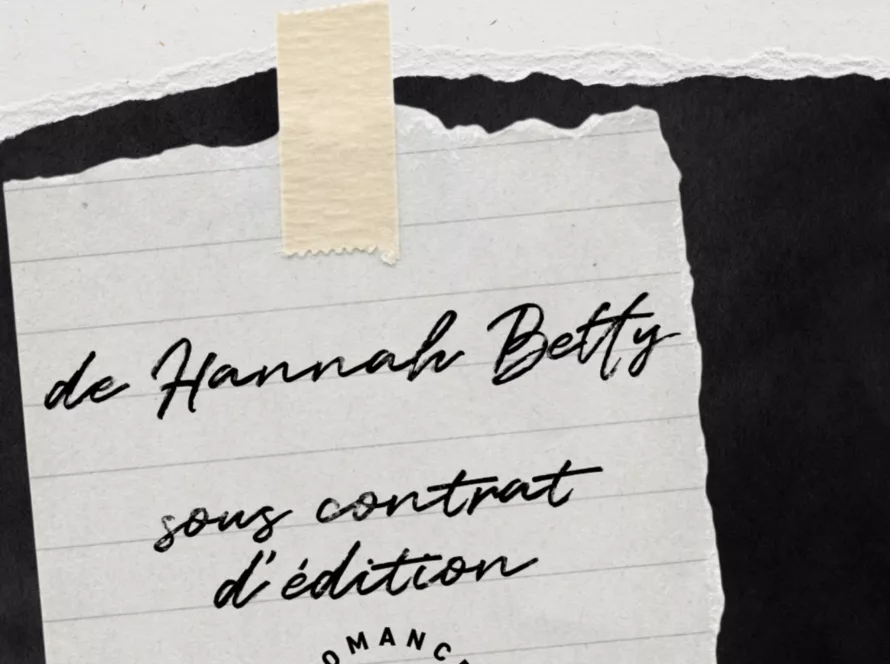 de Hannah Betty
sous contrat
d'édition
OMANC